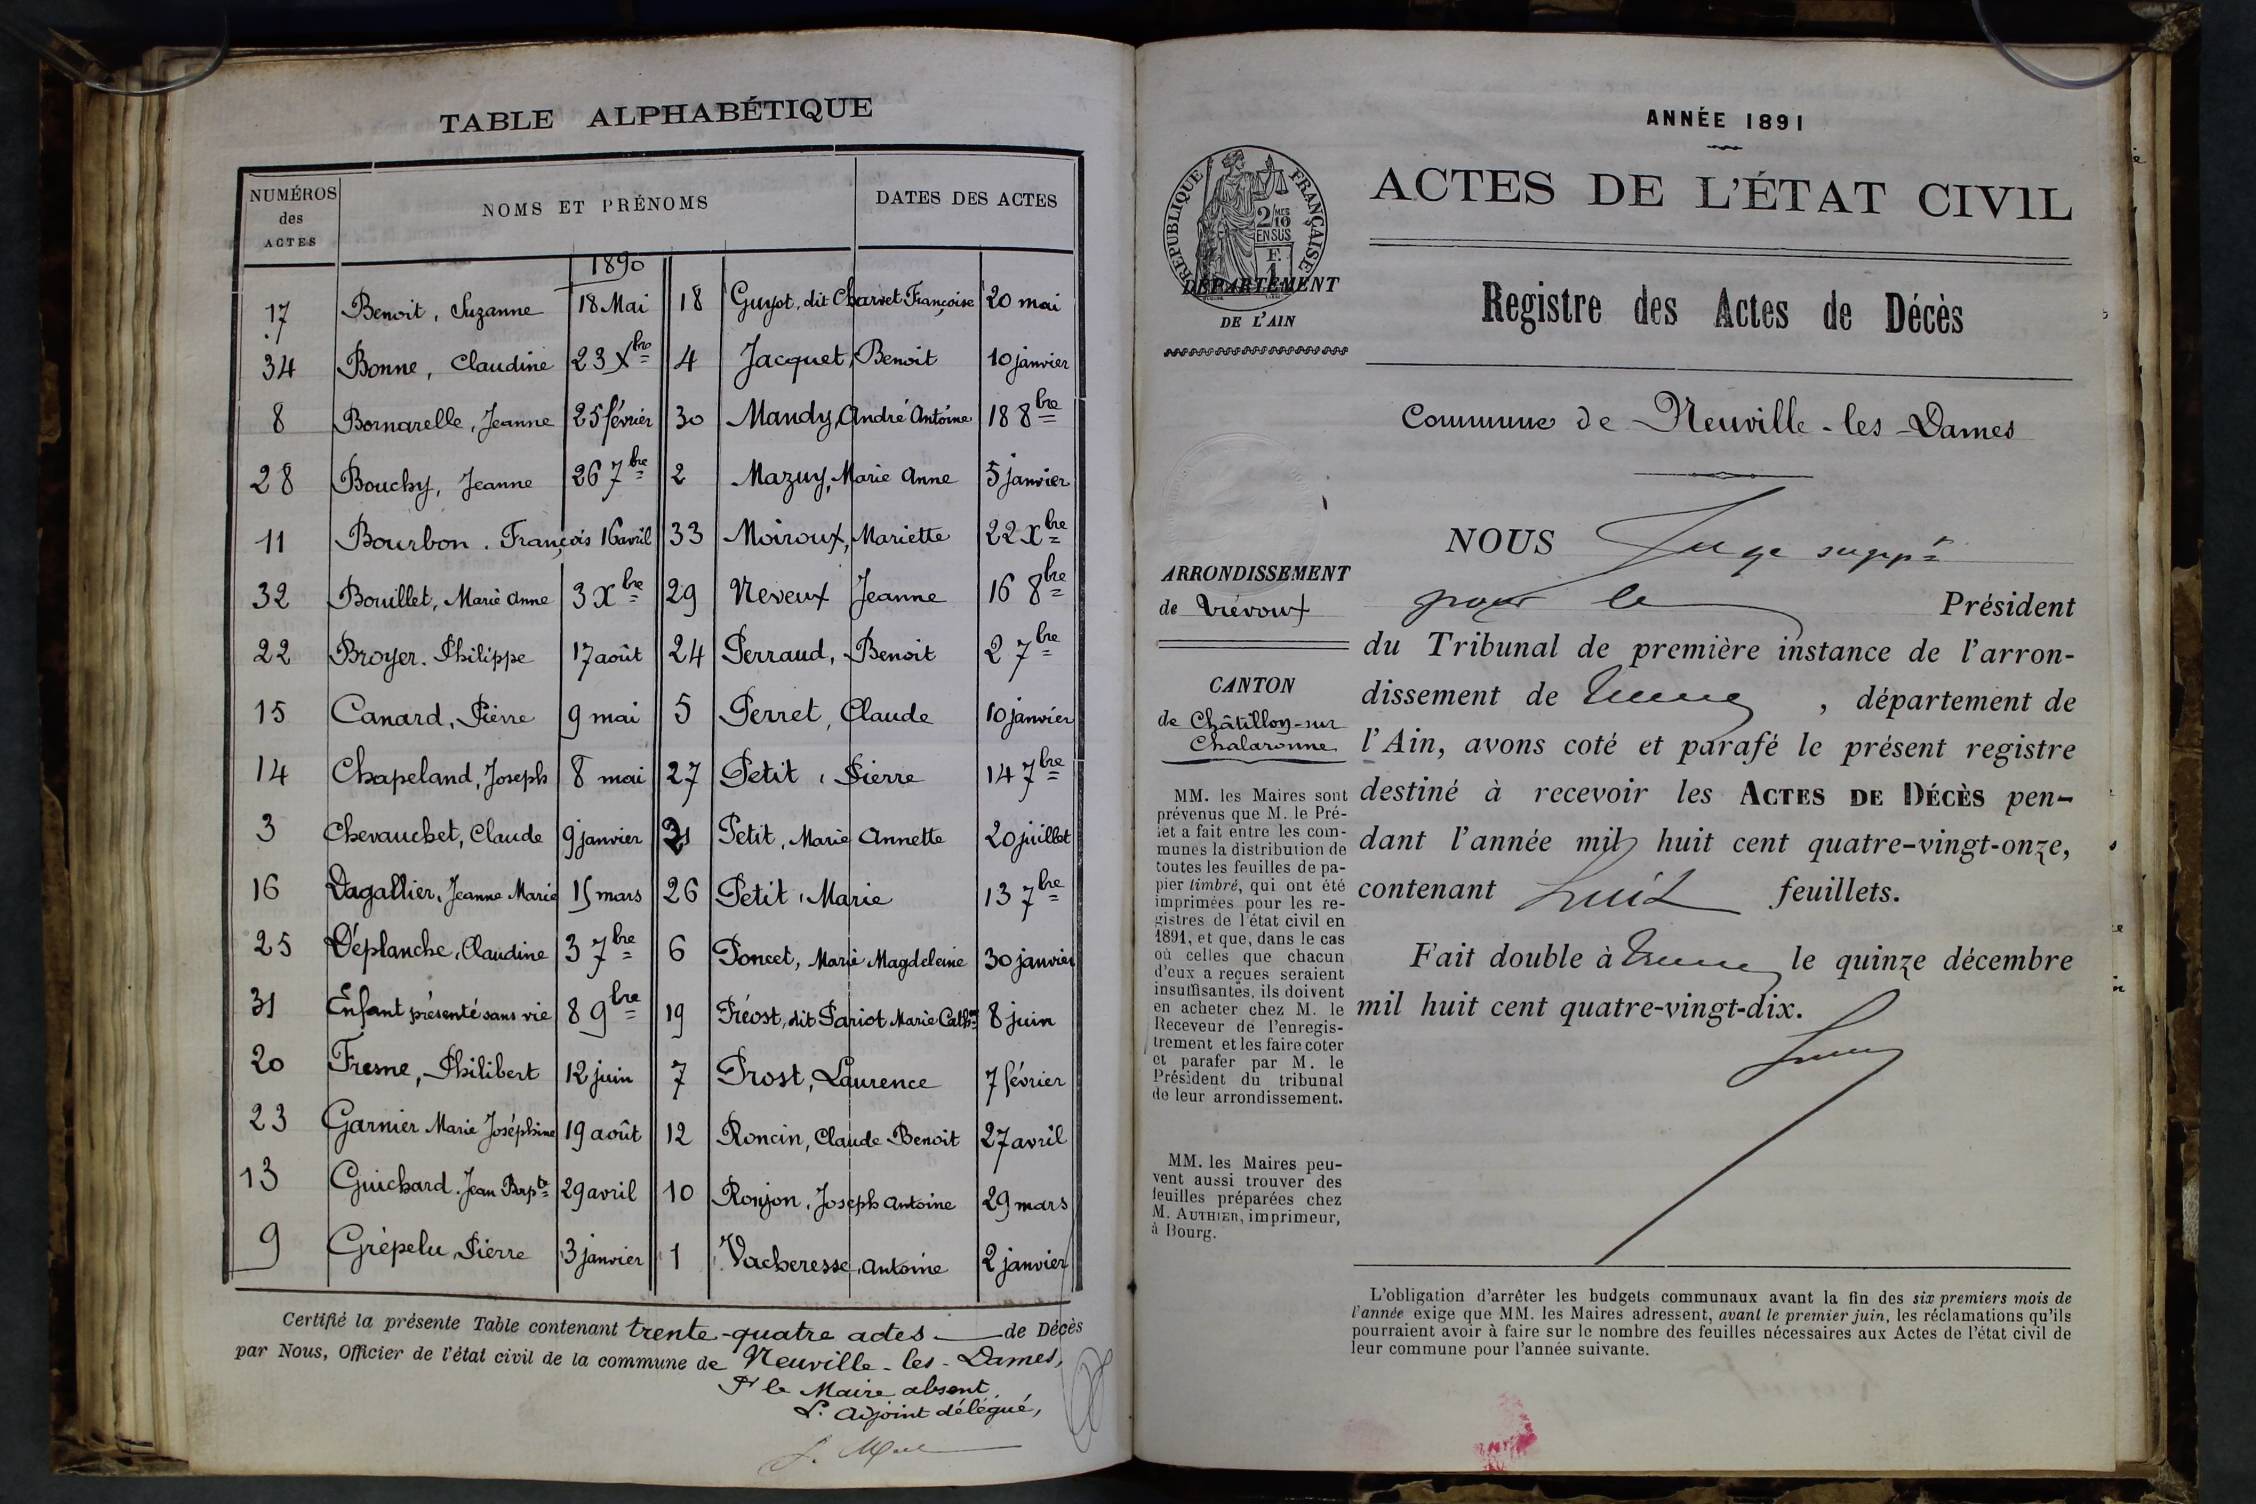 TABLE ALPHABÉTIQUE
NUMÉROS des ACTES
NOMS ET PRÉNOMS
DATES DES ACTES
1890
17 Benoit, Suzanne 18 Mai
34 Bonne, Claudine 23 Xbre
8 Bornarelle, Jeanne 25 février
28 Bouchy, Jeanne 26 7bre
11 Bourbon. François 16 avril
32 Bouillet, Marie Anne 3 Xbre
22 Broyer. Philippe 17 août
15 Canard, Pierre 9 mai
14 Chapeland, Joseph 8 mai
3 Chevauchet, Claude 9 janvier
16 Dagallier, Jeanne Marie 15 mars
25 Déplanche, Claudine 3 7bre
31 Enfant présenté sans vie 8 9bre
20 Fresne, Philibert 12 juin
23 Garnier Marie Joséphine 19 août
13 Guichard. Jean Bapte 29 avril
9 Grépelu, Pierre 3 janvier
18 Guyot, dit Charvet Françoise 20 mai
4 Jacquet, Benoit 10 janvier
30 Mandy, André Antoine 18 8bre
2 Mazuy, Marie Anne 5 janvier
33 Moiroux, Mariette 22 Xbre
29 Neveux Jeanne 16 8bre
24 Perraud, Benoit 2 7bre
5 Perret, Claude 10 janvier
27 Petit, Pierre 14 7bre
21 Petit, Marie Annette 20 juillet
26 Petit, Marie 13 7bre
6 Poncet, Marie Magdeleine 30 janvier
19 Préost, dit Pariot Marie Cathne 8 juin
7 Prost, Laurence 7 février
12 Roncin, Claude Benoit 27 avril
10 Ronjon, Joseph Antoine 29 mars
1 Vacheresse, Antoine 2 janvier
Certifié la présente Table contenant trente-quatre actes de Décès
par Nous, Officier de l'état civil de la commune de Neuville-les-Dames,
Pr le Maire absent,
L'adjoint délégué,
ANNÉE 1891
ACTES DE L'ÉTAT CIVIL
RÉPUBLIQUE FRANÇAISE
2/10MES
EN SUS
F.
1
DÉPARTEMENT
DE L'AIN
Registre des Actes de Décès
Commune de Neuville-les-Dames
ARRONDISSEMENT
de Trévoux
CANTON
de Châtillon-sur
Chalaronne
MM. les Maires sont
prévenus que M. le Pré-
fet a fait entre les com-
munes la distribution de
toutes les feuilles de pa-
pier timbré, qui ont été
imprimées pour les re-
gistres de l'état civil en
1891, et que, dans le cas
où celles que chacun
d'eux a reçues seraient
insuffisantes, ils doivent
en acheter chez M. le
Receveur de l'enregis-
trement et les faire coter
et parafer par M. le
Président du tribunal
de leur arrondissement.
MM. les Maires peu-
vent aussi trouver des
feuilles préparées chez
M. AUTHIER, imprimeur,
à Bourg.
NOUS Juge suppt
pour le Président
du Tribunal de première instance de l'arron-
dissement de Trévoux, département de
l'Ain, avons coté et parafé le présent registre
destiné à recevoir les ACTES DE DÉCÈS pen-
dant l'année mil huit cent quatre-vingt-onze,
contenant huit feuillets.
Fait double à Trévoux le quinze décembre
mil huit cent quatre-vingt-dix.
L'obligation d'arrêter les budgets communaux avant la fin des six premiers mois de
l'année exige que MM. les Maires adressent, avant le premier juin, les réclamations qu'ils
pourraient avoir à faire sur le nombre des feuilles nécessaires aux Actes de l'état civil de
leur commune pour l'année suivante.